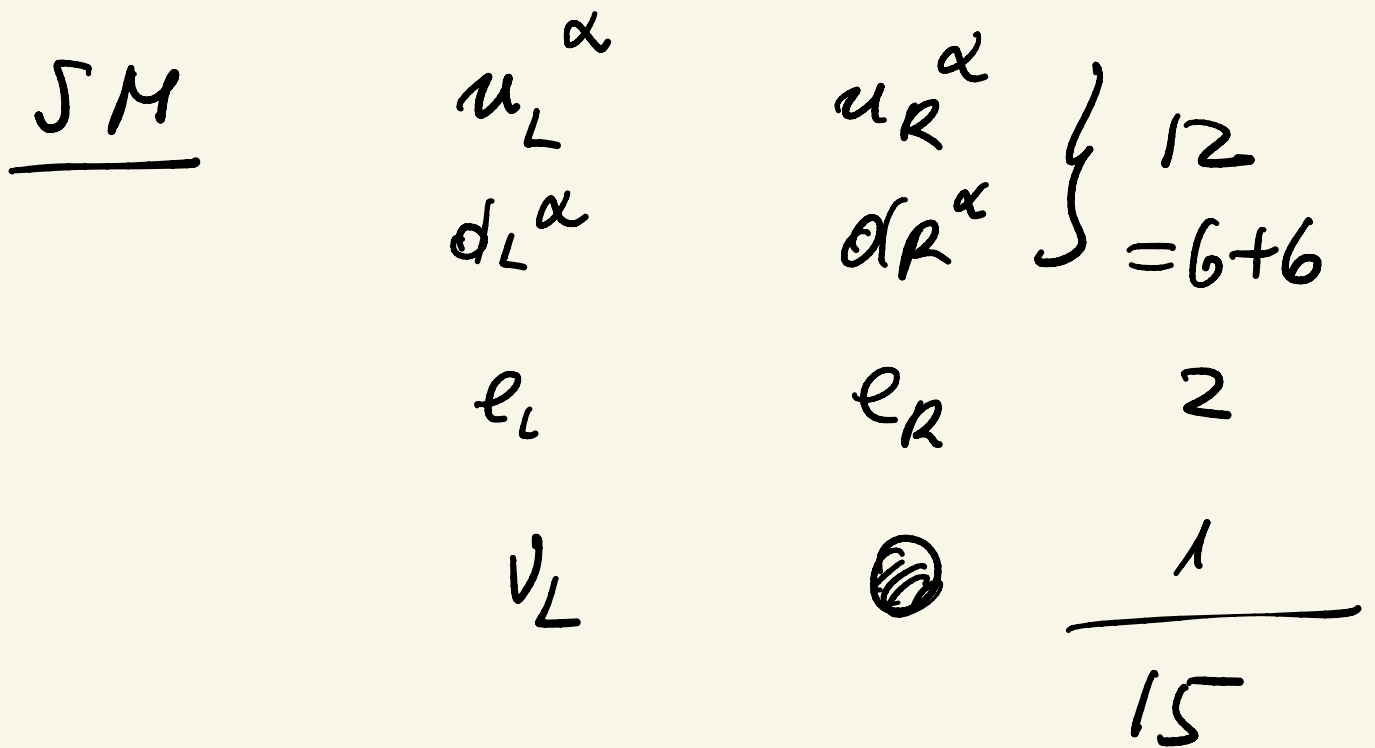 SM u_L^α u_R^α } 12
d_L^α d_R^α = 6 + 6
e_L e_R 2
ν_L 1
15